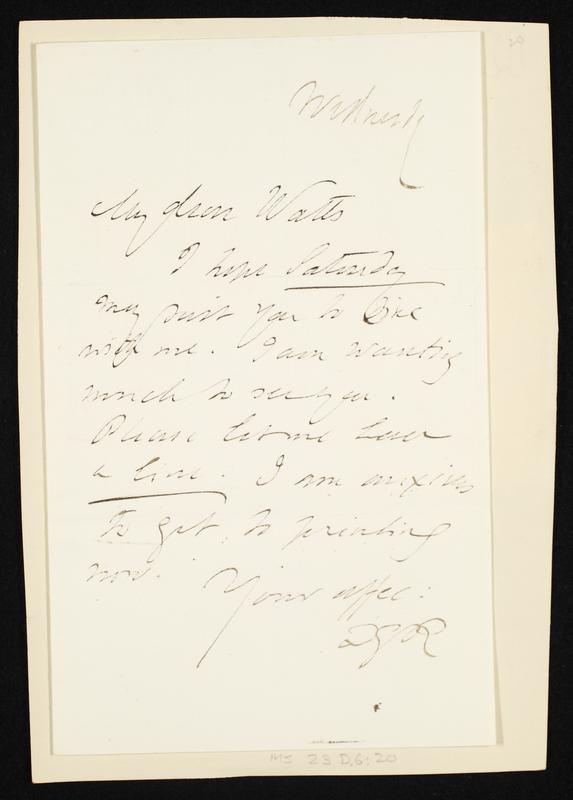 20
Wednesday
My dear Watts
I hope Saturday
may suit you to dine
with me. I am wanting
much to see you.
Please let me have
a line. I am anxious
to get to printing
now.
Your affec:
DGR
MS 23 D.6:20